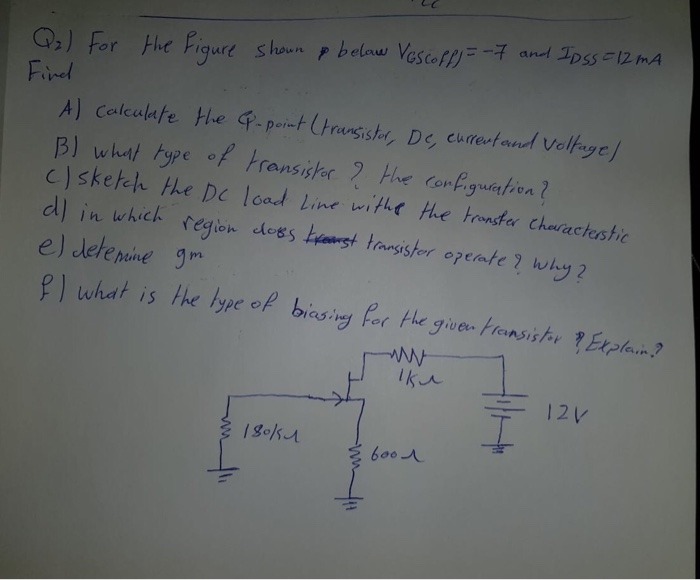 Q2) For the Figure shown below VGS(off) = -7 and IDSS = 12 mA
Find
A) calculate the Q-point (transistor, Dc, current and Voltage)
B) what type of transistor ? the configuration?
c) sketch the DC load Line withe the transfer characterstic
d) in which region does transistor operate ? why ?
e) detemine gm
f) what is the type of biasing for the given transistor ? Explain?
1KΩ
12V
180KΩ
600Ω